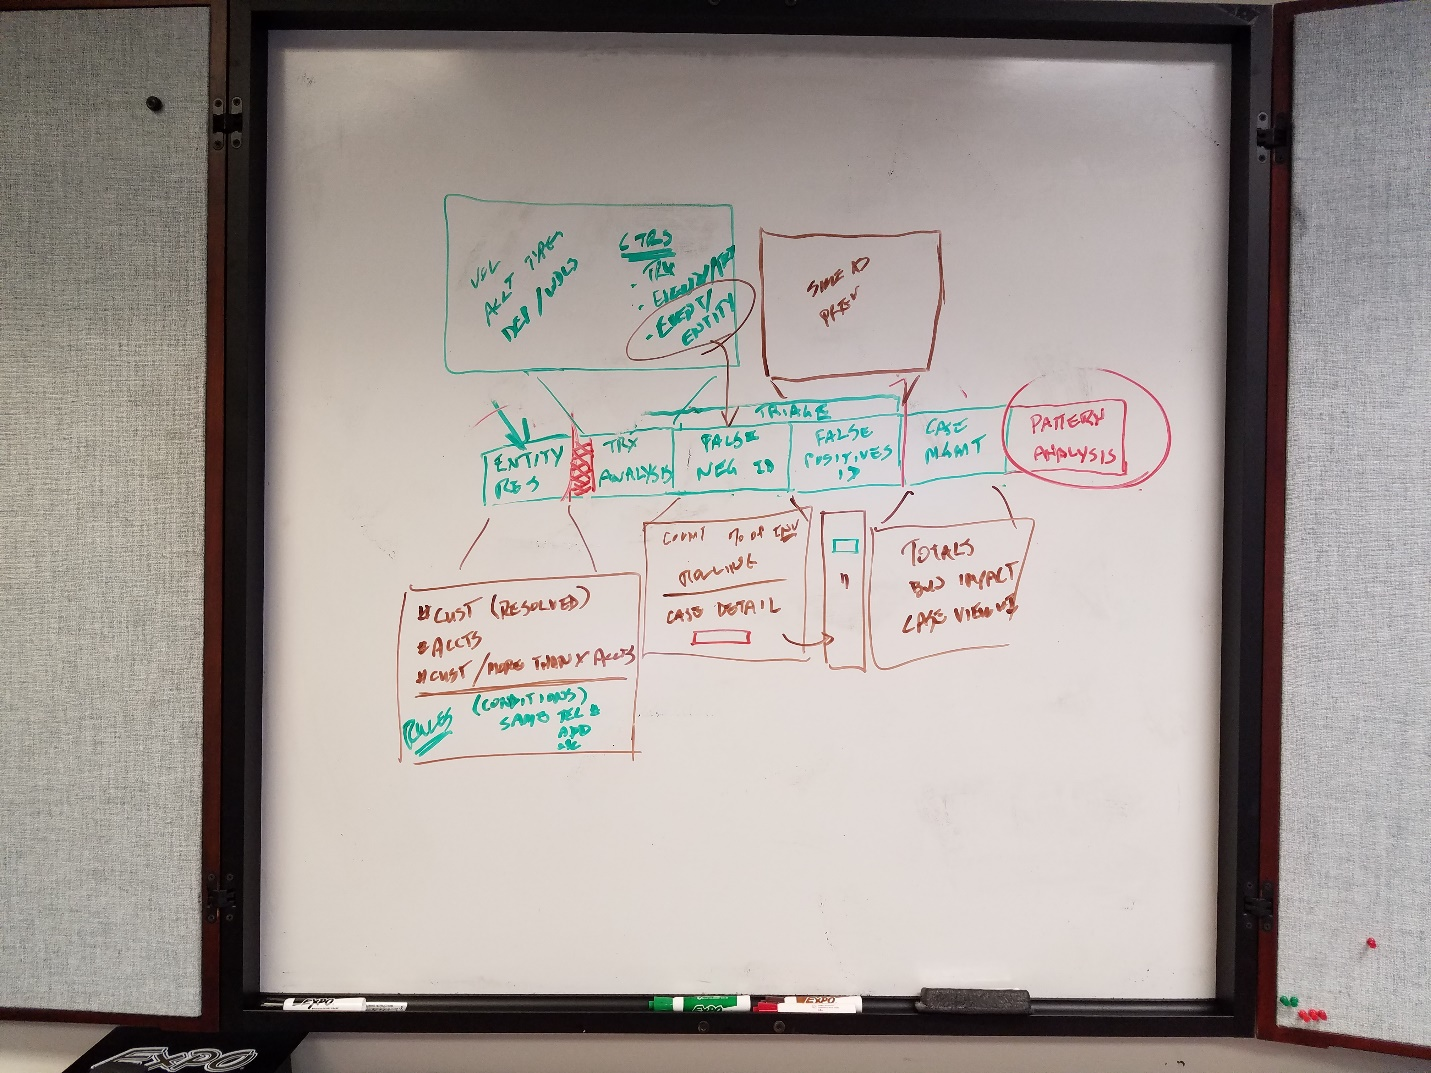 VOL
ACCT TYPES
DEP/WDLS
CTRS
- TRX
-
- EXEMPT/
ENTITY
SAME AS
PREV
TRIAGE
ENTITY
RES
TRX
ANALYSIS
FALSE
NEG ID
FALSE
POSITIVES
ID
CASE
MGMT
PATTERN
ANALYSIS
#CUST (RESOLVED)
#ACCTS
#CUST/MORE THAN X ACCTS
RULES (CONDITIONS)
SAME TEL #
ADD
COUNT % OF INV
ROLLING
CASE DETAIL
"
TOTALS
BUS IMPACT
CASE VIEW
EXPO
EXPO
EXPO
EXPO